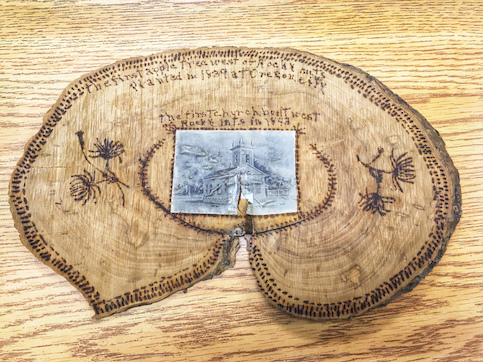 the first apple Tree west of Rocky mts
planted in 1839 at Oregon City
the first church built west
Rocky mts. in 1843